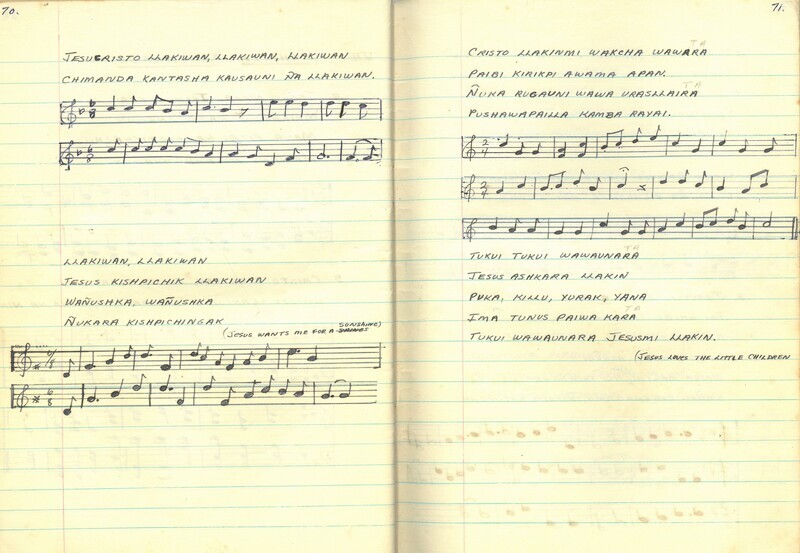 70.
JESUCRISTO LLAKIWAN, LLAKIWAN, LLAKIWAN
CHIMANDA KANTASHA KAUSAUNI ÑA LLAKIWAN.
6/8
6/8
LLAKIWAN, LLAKIWAN
JESUS KISHPICHIK LLAKIWAN
WAÑUSHKA, WAÑUSHKA
ÑUKARA KISHPICHINGAK
(JESUS WANTS ME FOR A SUNSHINE)
6/8
6/8
71.
CRISTO LLAKINMI WAKCHA WAWARA
TA
PAIBI KIRIKPI AWAMA APAN.
ÑUKA RUGAUNI WAWA URASLLAIRA
TA
PUSHAWAPAILLA KAMBA RAYAI.
2/4
2/4
TUKUI TUKUI WAWAUNARA
TA
JESUS ASHKARA LLAKIN
PUKA, KILLU, YURAK, YANA
IMA TUNUS PAIWA KARA
TA
TUKUI WAWAUNARA JESUSMI LLAKIN.
(JESUS LOVES THE LITTLE CHILDREN